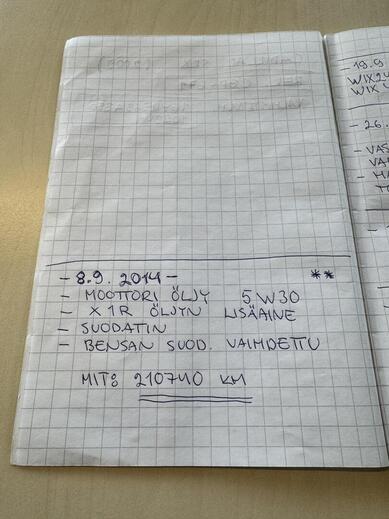 - 8.9. 2014 - **
- MOOTTORI ÖLJY 5W30
- X1R ÖLJYN LISÄAINE
- SUODATIN
- BENSAN SUOD. VAIHDETTU
MIT: 210740 KM
- 19.9
WIX24
WIX
- 26.
- VAS
VA
- MA